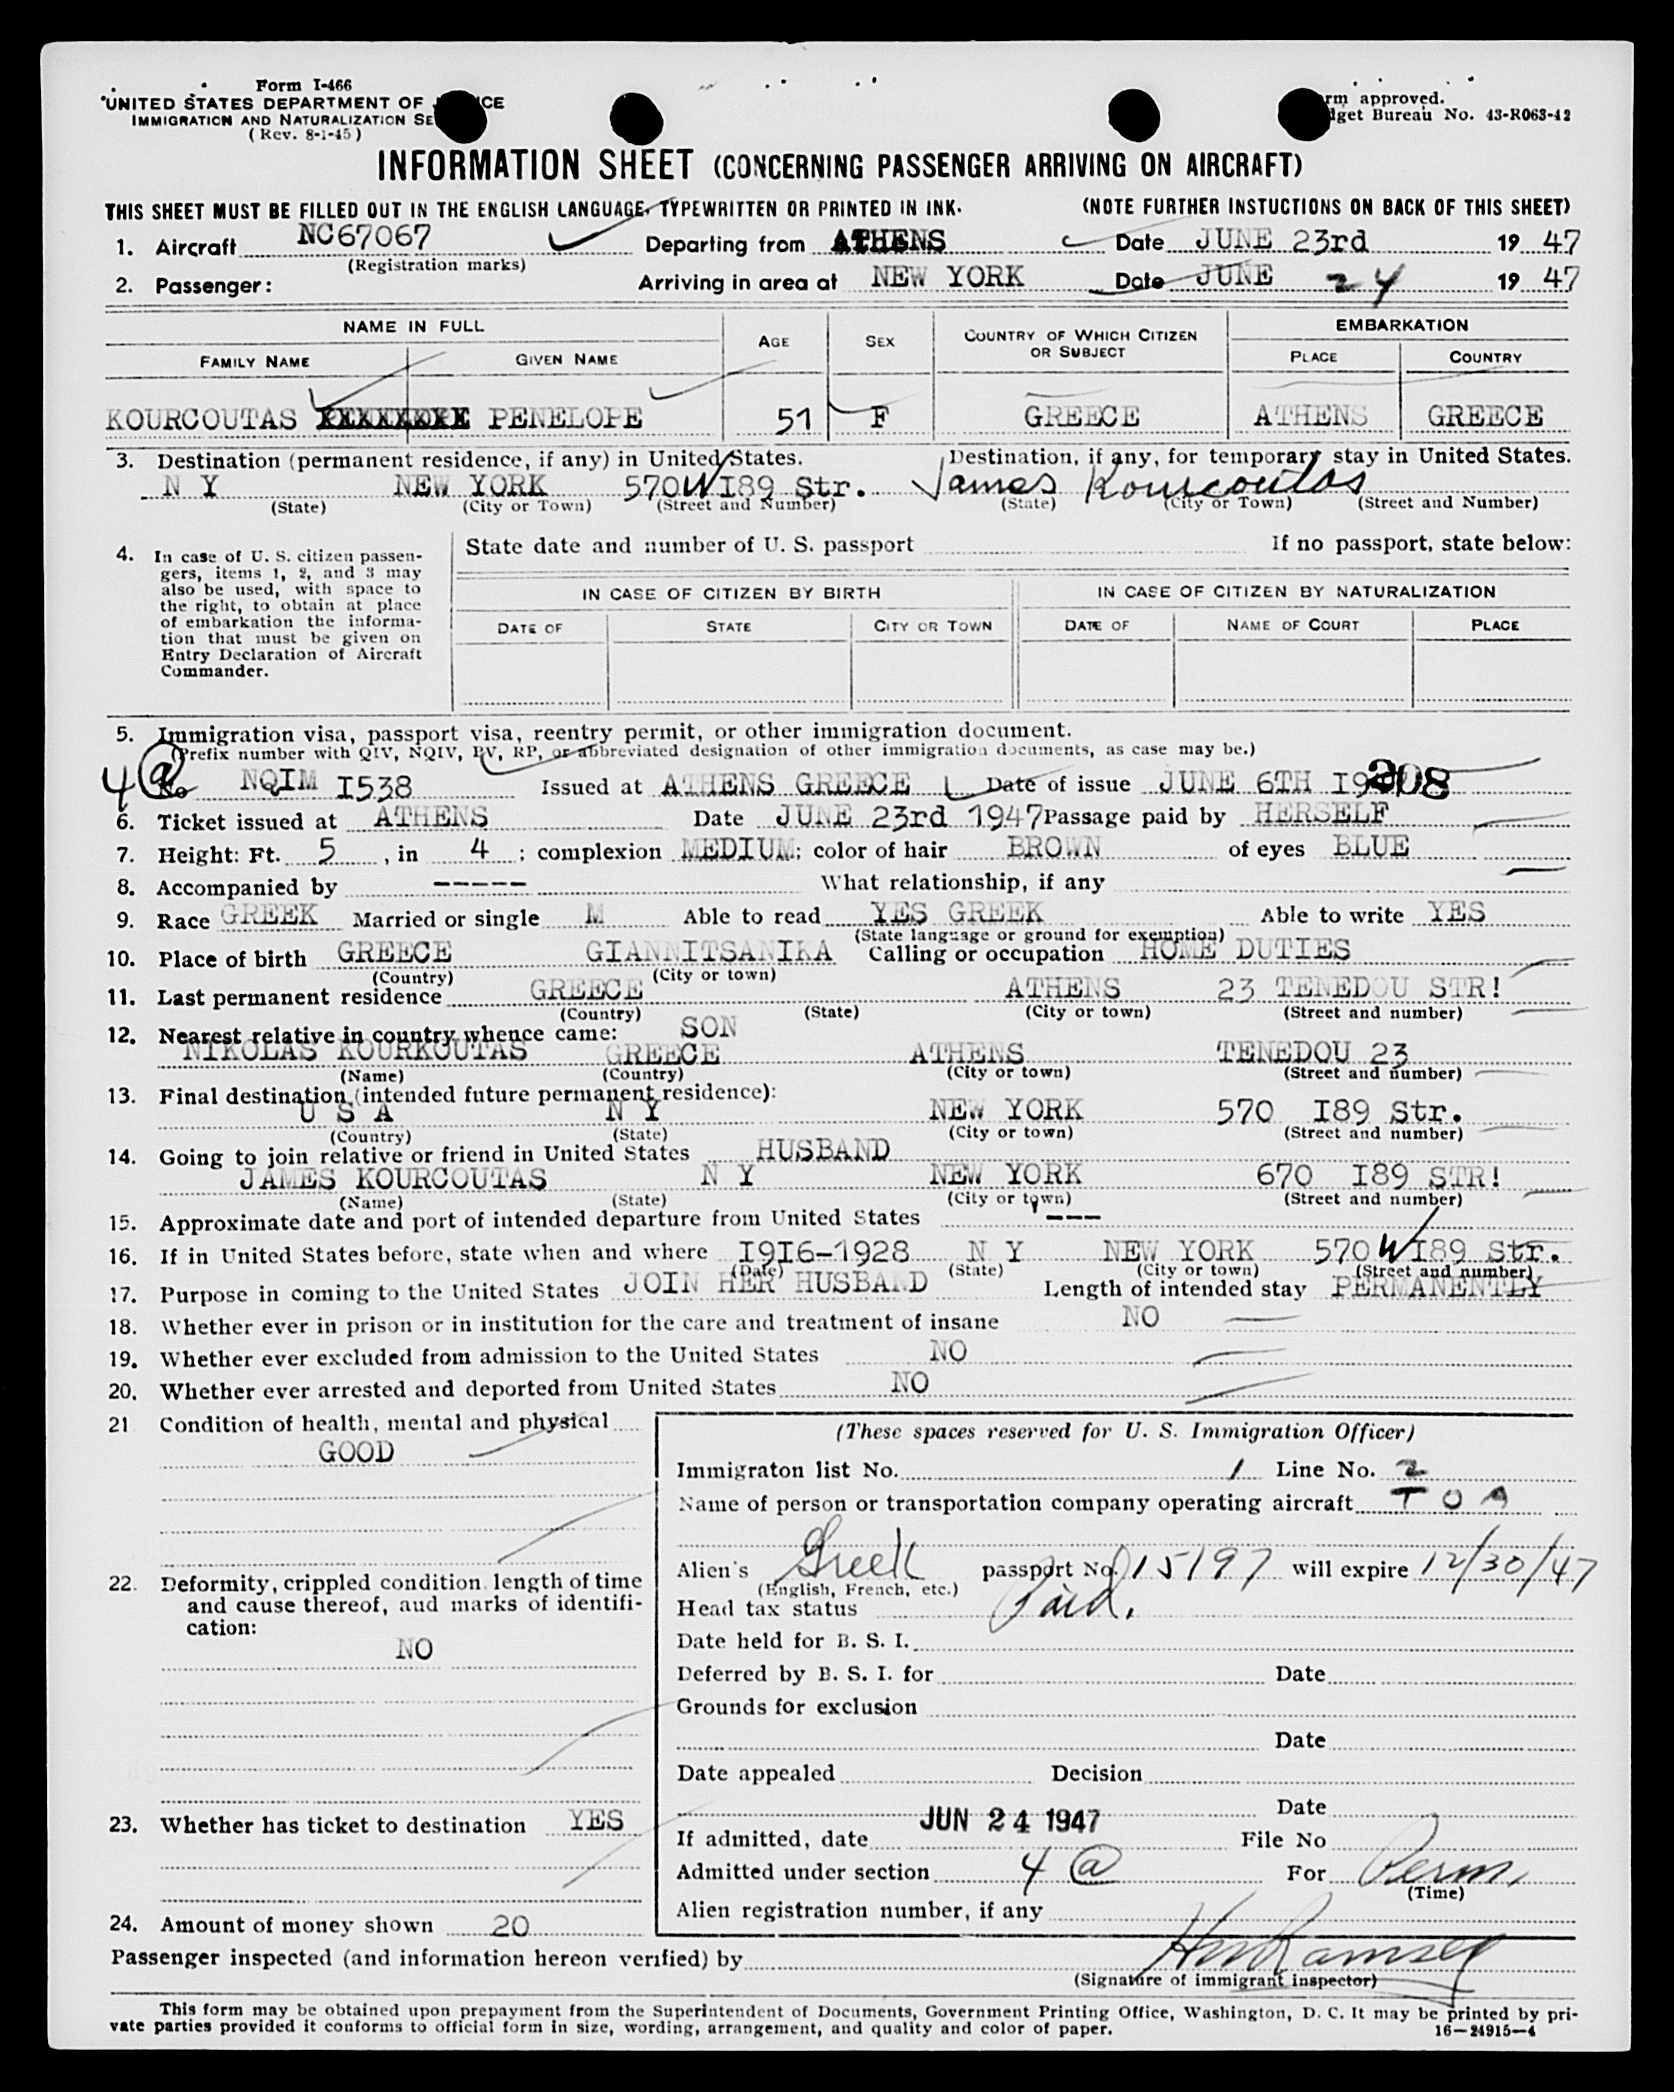 Form I-466
UNITED STATES DEPARTMENT OF
IMMIGRATION AND NATURALIZATION
(Rev. 8-1-45)
approved.
Bureau No. 43-R063-42
INFORMATION SHEET (CONCERNING PASSENGER ARRIVING ON AIRCRAFT)
THIS SHEET MUST BE FILLED OUT IN THE ENGLISH LANGUAGE, TYPEWRITTEN OR PRINTED IN INK. (NOTE FURTHER INSTUCTIONS ON BACK OF THIS SHEET)
1. Aircraft NC67067 Departing from ATHENS Date JUNE 23rd 19 47
(Registration marks)
2. Passenger: Arriving in area at NEW YORK Date JUNE 24 19 47
NAME IN FULL AGE SEX COUNTRY OF WHICH CITIZEN OR SUBJECT EMBARKATION
FAMILY NAME GIVEN NAME PLACE COUNTRY
KOURCOUTAS PENELOPE 51 F GREECE ATHENS GREECE
3. Destination (permanent residence, if any) in United States. Destination, if any, for temporary stay in United States.
N Y NEW YORK 570 W I89 Str. James Kourcoutas
(State) (City or Town) (Street and Number) (State) (City or Town) (Street and Number)
4. In case of U. S. citizen passen-
gers, items 1, 2, and 3 may
also be used, with space to
the right, to obtain at place
of embarkation the informa-
tion that must be given on
Entry Declaration of Aircraft
Commander.
State date and number of U. S. passport If no passport, state below:
IN CASE OF CITIZEN BY BIRTH IN CASE OF CITIZEN BY NATURALIZATION
DATE OF STATE CITY OR TOWN DATE OF NAME OF COURT PLACE
5. Immigration visa, passport visa, reentry permit, or other immigration document.
(Prefix number with QIV, NQIV, PV, RP, or abbreviated designation of other immigration documents, as case may be.)
4(a) No NQIM I538 Issued at ATHENS GREECE Date of issue JUNE 6TH 208
6. Ticket issued at ATHENS Date JUNE 23rd 1947 Passage paid by HERSELF
7. Height: Ft. 5, in 4; complexion MEDIUM; color of hair BROWN of eyes BLUE
8. Accompanied by ----- What relationship, if any
9. Race GREEK Married or single M Able to read YES GREEK Able to write YES
(State language or ground for exemption)
10. Place of birth GREECE GIANNITSANIKA Calling or occupation HOME DUTIES
(Country) (City or town)
11. Last permanent residence GREECE ATHENS 23 TENEDOU STR!
(Country) (State) (City or town) (Street and number)
12. Nearest relative in country whence came: SON
NIKOLAS KOURKOUTAS GREECE ATHENS TENEDOU 23
(Name) (Country) (City or town) (Street and number)
13. Final destination (intended future permanent residence):
U S A N Y NEW YORK 570 I89 Str.
(Country) (State) (City or town) (Street and number)
14. Going to join relative or friend in United States HUSBAND
JAMES KOURCOUTAS N Y NEW YORK 670 I89 STR!
(Name) (State) (City or town) (Street and number)
15. Approximate date and port of intended departure from United States ---
16. If in United States before, state when and where I9I6-1928 N Y NEW YORK 570 W I89 Str.
(Date) (State) (City or town) (Street and number)
17. Purpose in coming to the United States JOIN HER HUSBAND Length of intended stay PERMANENTLY
18. Whether ever in prison or in institution for the care and treatment of insane NO
19. Whether ever excluded from admission to the United States NO
20. Whether ever arrested and deported from United States NO
21 Condition of health, mental and physical
GOOD
22. Deformity, crippled condition, length of time
and cause thereof, and marks of identifi-
cation:
NO
23. Whether has ticket to destination YES
24. Amount of money shown 20
(These spaces reserved for U. S. Immigration Officer)
Immigraton list No. 1 Line No. 2
Name of person or transportation company operating aircraft T O A
Alien's Greek passport No. 15197 will expire 12/30/47
(English, French, etc.)
Head tax status Paid.
Date held for B. S. I.
Deferred by B. S. I. for Date
Grounds for exclusion
Date
Date appealed Decision
Date
If admitted, date JUN 24 1947 File No
Admitted under section 4(a) For Perm.
(Time)
Alien registration number, if any
Passenger inspected (and information hereon verified) by Ramsey
(Signature of immigrant inspector)
This form may be obtained upon prepayment from the Superintendent of Documents, Government Printing Office, Washington, D. C. It may be printed by pri-
vate parties provided it conforms to official form in size, wording, arrangement, and quality and color of paper. 16—24915-4